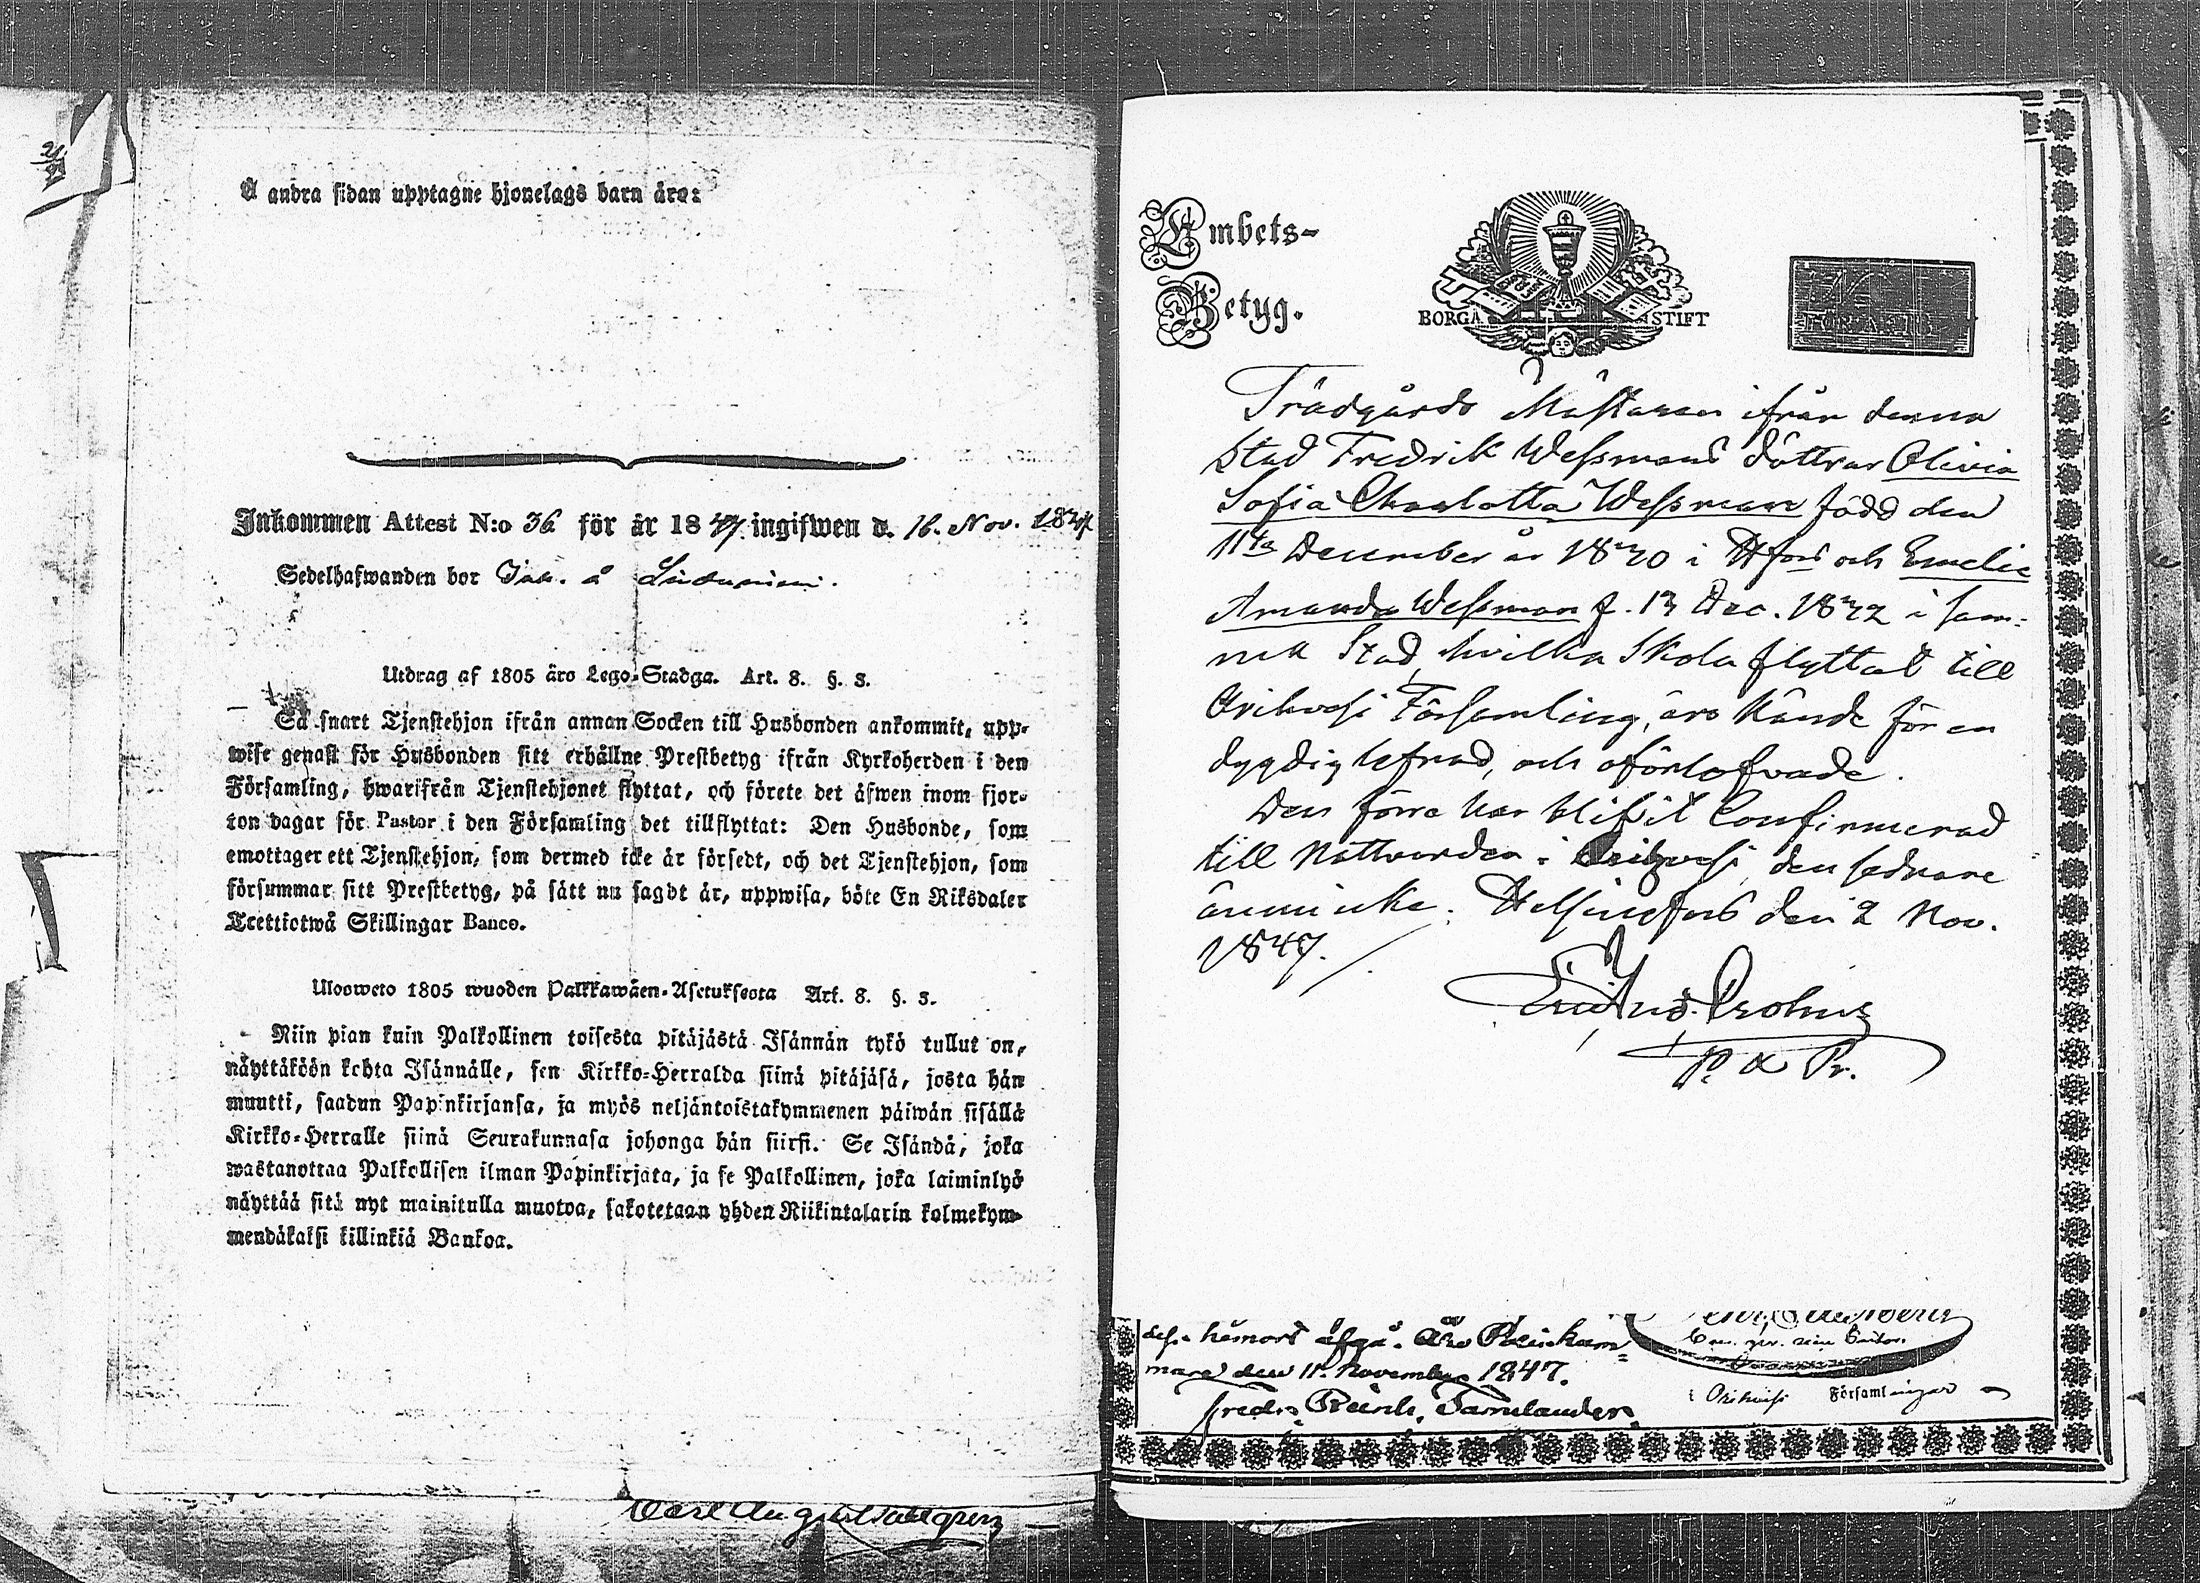 Å andra sidan upptagne hjonelags barn äro:
Inkommen Attest N:o 36 för år 1847 ingifwen d. 16. Nov. 1847
Sedelhafwanden bor å
Utdrag af 1805 års Lego-Stadga. Art. 8. §. 3.
Så snart Tjenstehjon ifrån annan Socken till Husbonden ankommit, upp-
wise genast för Husbonden sitt erhållne Prestbetyg ifrån Kyrkoherden i den
Församling, hwarifrån Tjenstehjonet flyttat, och förete det äfwen inom fjor-
ton dagar för Pastor i den Församling det tillflyttat: Den Husbonde, som
emottager ett Tjenstehjon, som dermed icke är försedt, och det Tjenstehjon, som
försummar sitt Prestbetyg, på sätt nu sagdt är, uppwisa, böte En Riksdaler
Trettiotwå Skillingar Banco.
Ulosweto 1805 wuoden Palkkawäen-Asetuksesta Art. 8. §. 3.
Niin pian kuin Palkollinen toisesta pitäjästä Isännän tykö tullut on,
näyttäköön kohta Isännälle, sen Kirkko-Herralda siinä pitäjäsä, josta hän
muutti, saadun Papinkirjansa, ja myös neljäntoistakymmenen päiwän sisällä
Kirkko-Herralle siinä Seurakunnasa johonga hän siirsi. Se Isändä, joka
wastanottaa Palkollisen ilman Papinkirjata, ja se Palkollinen, joka laiminlyö
näyttää sitä nyt mainitulla muotoa, sakotetaan yhden Riikintalarin kolmekym-
mendäkaksi killinkiä Bankoa.
Carl August
Embets-
Betyg.
BORGÅ STIFT
Trädgårds Mästaren ifrån denna
Stad Fredrik Wessmans döttrar Olivia
Sofia Charlotta Wessman född den
11te December år 1830 i Hfors och Emelie
Amanda Wessman f. 13 Dec. 1832 i sam-
ma Stad, hvilka skola flyttat till
Orihvesi Församling, äro kände för en
dygdig lefnad, och oförlofvade.
Den förra har blifvit Confirmerad
till Nattvarden i Orihvesi, den sednare
ännu icke. Helsingfors den 2 Nov.
1847.
P. & Pr.
den 11. November 1847.
Fredr.
i Orihvesi Församlingar